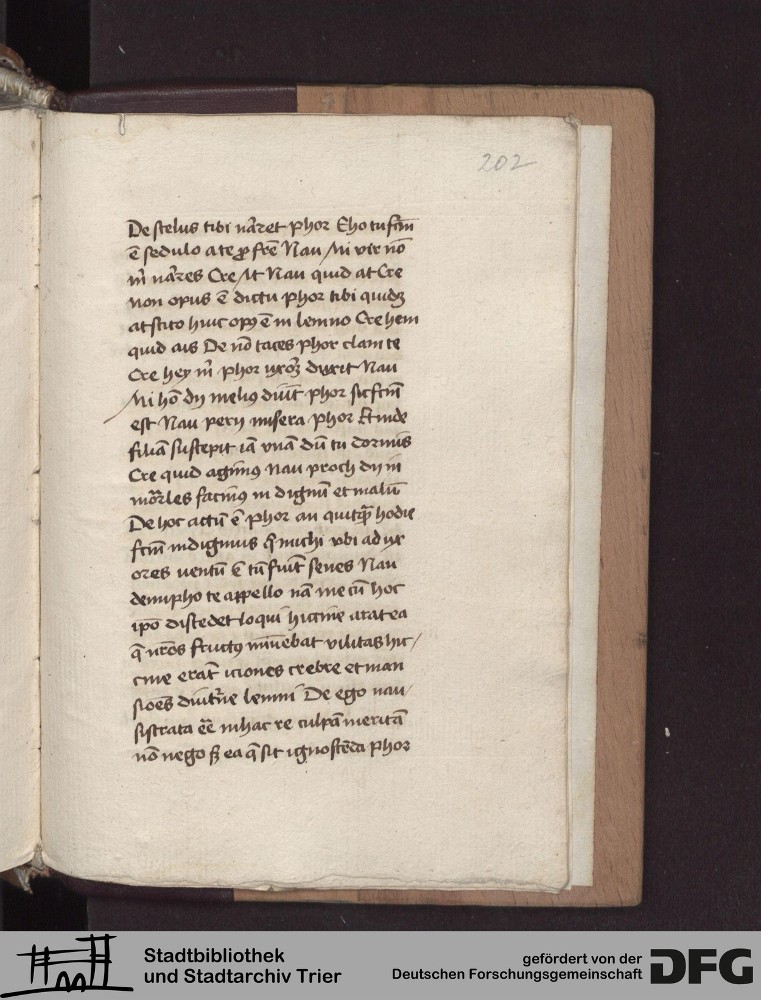 202
De scelus tibi nãret Phor Eho tu fc̃m
ẽ sedulo a te ꝓ frẽ Nau Ni vir nõ
m̃ nãres Cre it Nau quid at Cre
non opus ẽ dictu Phor tibi quidẽ
at scito huic opꝯ ẽ in lemno Cre hem
quid ais De nõ taces Phor clam te
Cre hey m̃ Phor uxorẽ duxit Nau
Mi hõ dij melius duit̃ Phor sic fc̃m
est Nau perij misera Phor Et inde
filiã suscepit iã vnã dũ tu dormis
Cre quid agimꝯ Nau proch dij in
mõrles facinꝯ in dignũ et malũ
De hoc actũ ẽ Phor an quitq̃ hodie
fc̃m indignius q̃ michi vbi ad ux
ores uentũ ẽ tũ fiũt senes Nau
demipho te appello nã me cũ hoc
ipõ distedet loqui hiccine erat ea
q̃ nros fructꝯ minuebat vilitas hic
cine erãt iciones crebre et man
sioẽs diut̃ne lemni De ego nau
sistrata eẽ in hac re culpã meritã
nõ nego s̃ ea q̃ sit ignoscẽda Phor
Stadtbibliothek
und Stadtarchiv Trier
gefördert von der
Deutschen Forschungsgemeinschaft
DFG